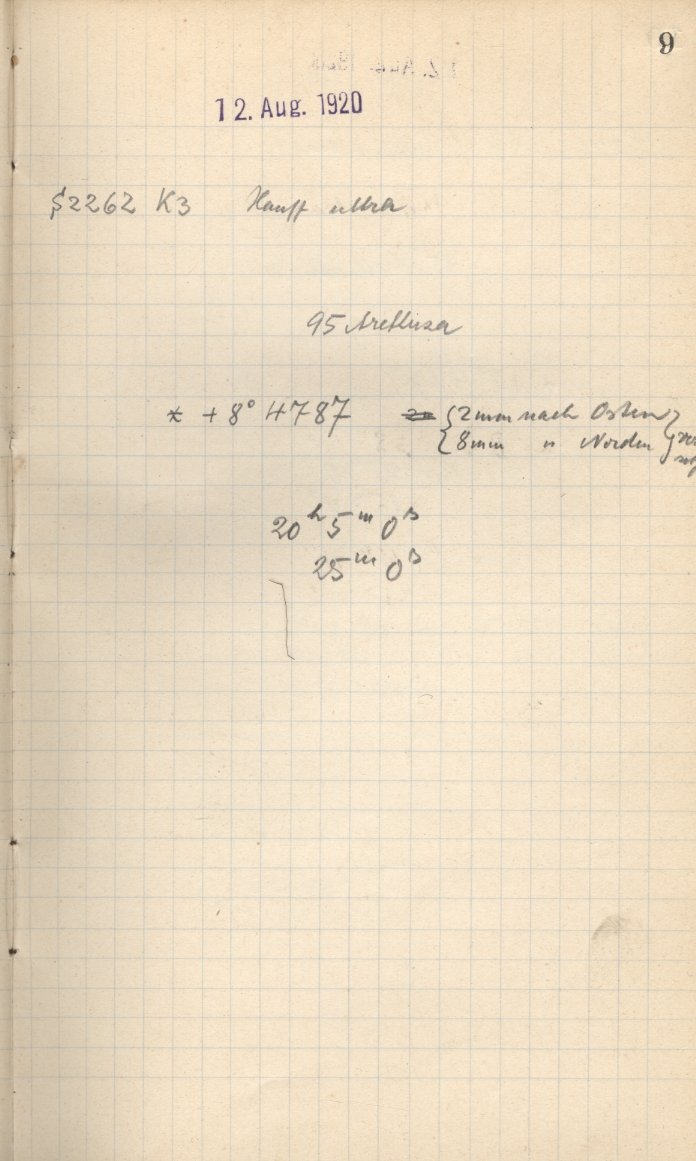 9
12. Aug. 1920
S2262 K3 Hauff ultra
95 Arethusa
* +8° 4787 {2mm nach Osten}
{8mm " Norden}
20h 5m 0s
25m 0s